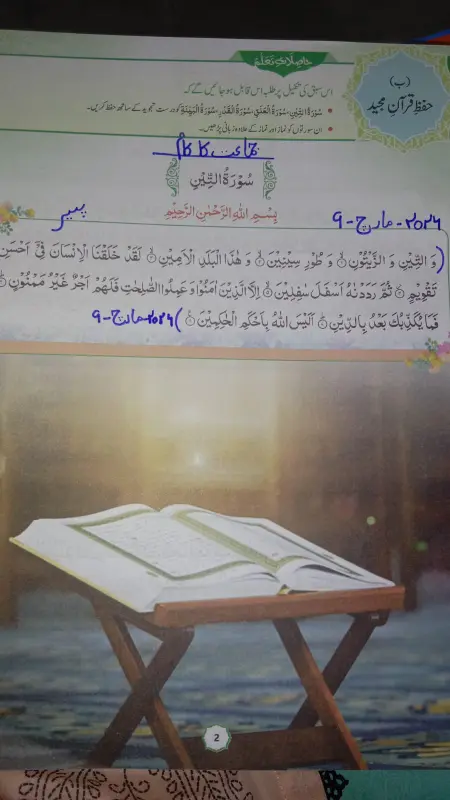 حاصلاتِ تعلّم
(ب)
حفظِ قرآنِ مجید
اس سبق کی تکمیل پر طلبہ اس قابل ہو جائیں گے کہ
• سُوْرَۃُ التِّیْنِ، سُوْرَۃُ الْعَلَقِ، سُوْرَۃُ الْقَدْرِ، سُوْرَۃُ الْبَیِّنَۃِ کو درست تجوید کے ساتھ حفظ کریں۔
• ان سورتوں کو نماز اور نماز کے علاوہ زبانی پڑھیں۔
جماعت کا کام
سُوْرَۃُ التِّیْنِ
بِسْمِ اللّٰہِ الرَّحْمٰنِ الرَّحِیْمِ
9-مارچ-2026
پیر
(وَ التِّیْنِ وَ الزَّیْتُوْنِ ۙ وَ طُوْرِ سِیْنِیْنَ ۙ وَ هٰذَا الْبَلَدِ الْاَمِیْنِ ۙ لَقَدْ خَلَقْنَا الْاِنْسَانَ فِیْۤ اَحْسَنِ
تَقْوِیْمٍ ۫ ثُمَّ رَدَدْنٰهُ اَسْفَلَ سٰفِلِیْنَ ۙ اِلَّا الَّذِیْنَ اٰمَنُوْا وَ عَمِلُوا الصّٰلِحٰتِ فَلَهُمْ اَجْرٌ غَیْرُ مَمْنُوْنٍ ؕ
فَمَا یُكَذِّبُكَ بَعْدُ بِالدِّیْنِ ؕ اَلَیْسَ اللّٰهُ بِاَحْكَمِ الْحٰكِمِیْنَ ۠) 9-مارچ-2026
2